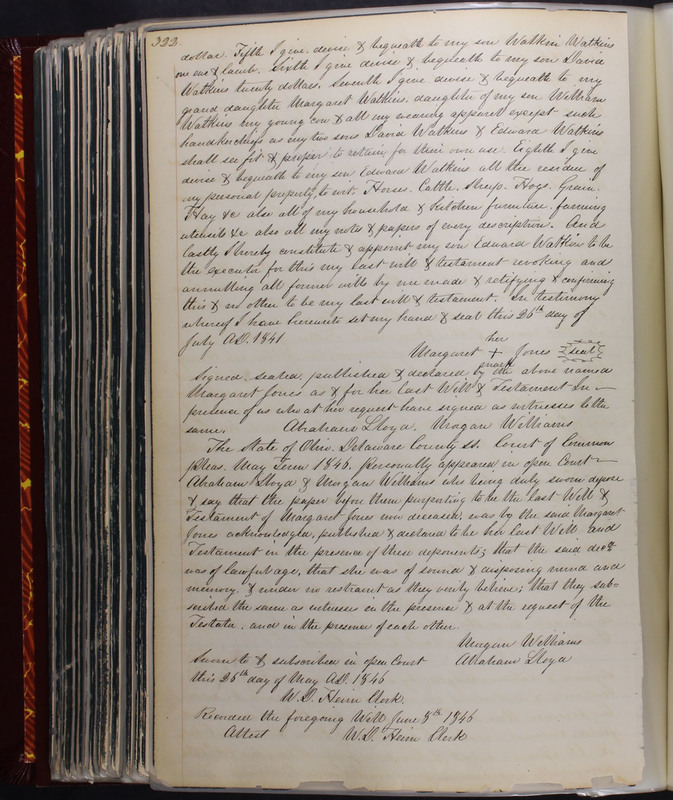 322.
dollar. Fifth I give devise & bequeath to my son Watkin Watkins
one ewe & lamb. Sixth I give devise & bequeath to my son David
Watkins twenty dollars. Seventh I give devise & bequeath to my
grand daughter Margaret Watkins, daughter of my son William
Watkins my young cow & all my wearing apparel except such
handkerchiefs as my two sons David Watkins & Edward Watkins
shall see fit & proper to retain for their own use. Eighth I give
devise & bequeath to my son Edward Watkins all the residue of
my personal property, to wit. Horses. Cattle. Sheep. Hogs. Grain.
Hay &c also all of my household & kitchen furniture. farming
utensils &c also all my notes & papers of every description. And
lastly I hereby constitute & appoint my son Edward Watkins to be
the executor for this my last will & testament revoking and
annulling all former wills by me made & ratifying & confirming
this & no other to be my last will & testament. In testimony
whereof I have hereunto set my hand & seal this 26th day of
July A.D. 1841
her
Margaret + Jones {seal}
mark
Signed. sealed, published & declared by the above named
Margaret Jones as & for her last Will & Testament In
presence of us who at her request have signed as witnesses to the
same. Abraham Lloyd. Morgan Williams
The State of Ohio. Delaware County ss. Court of Common
Pleas. May Term 1846. Personally appeared in open Court
Abraham Lloyd & Morgan Williams who being duly sworn depose
& say that the paper before them purporting to be the last Will &
Testament of Margaret Jones now deceased, was by the said Margaret
Jones acknowledged, published & declared to be her last Will and
Testament in the presence of these deponents; that the said decd
was of lawful age, that she was of sound & disposing mind and
memory. & under no restraint as they verily believe; that they sub=
scribed the same as witnesses in the presence & at the request of the
Testator. and in the presence of each other.
Morgan Williams
Sworn to & subscribed in open Court Abraham Lloyd
this 26th day of May A.D. 1846
W.D. Heim Clerk.
Recorded the foregoing Will June 8th 1846
Attest W.D. Heim Clerk